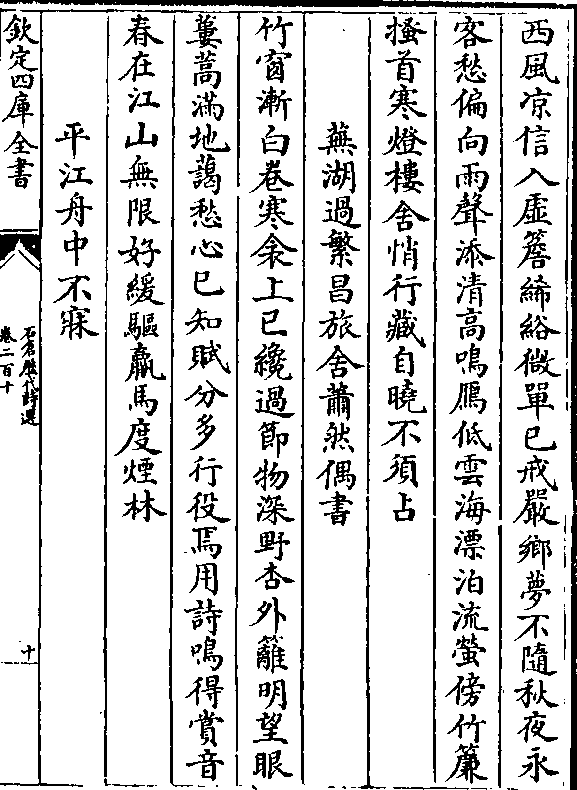 西風凉信入虛簷絺綌微單已戒嚴鄉夢不隨秋夜永
客愁偏向雨聲添清高鳴鴈低雲海漂泊流螢傍竹簾
搔首寒燈樓舍悄行藏自曉不須占
蕪湖過繁昌旅舍蕭然偶書
竹窗漸白卷寒衾上已纔過節物深野杏外籬明望眼
蔞蒿滿地藹愁心已知賦分多行役焉用詩鳴得賞音
春在江山無限好緩驅羸馬度煙林
平江舟中不寐
欽定四庫全書
石倉歷代詩選
卷二百十
十